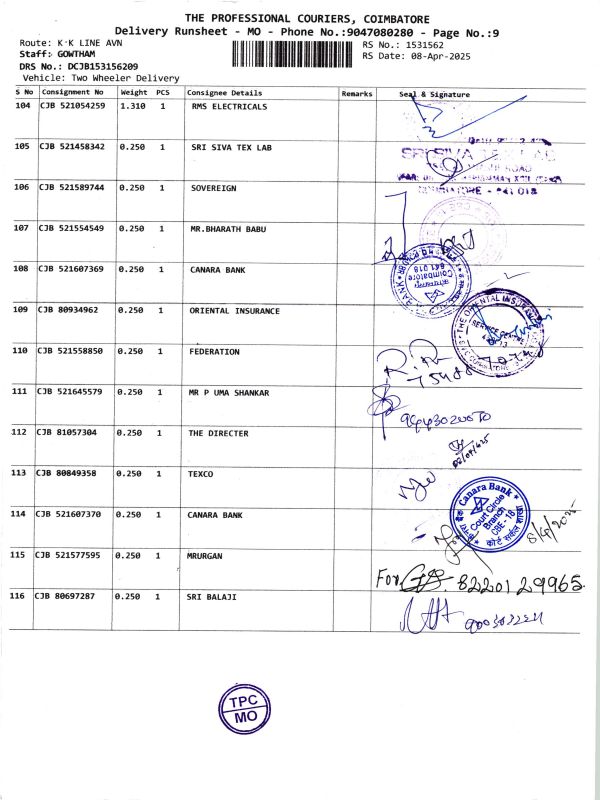 THE PROFESSIONAL COURIERS, COIMBATORE
Delivery Runsheet - MO - Phone No.:9047080280 - Page No.:9
Route: K K LINE AVN
RS No.: 1531562
Staff: GOWTHAM
RS Date: 08-Apr-2025
DRS No.: DCJB153156209
Vehicle: Two Wheeler Delivery
S No Consignment No Weight PCS Consignee Details Remarks Seal & Signature
104 CJB 521054259 1.310 1 RMS ELECTRICALS
105 CJB 521458342 0.250 1 SRI SIVA TEX LAB
SRI SIVA TEX LAB
106 CJB 521589744 0.250 1 SOVEREIGN
107 CJB 521554549 0.250 1 MR.BHARATH BABU
108 CJB 521607369 0.250 1 CANARA BANK
Coimbatore
641 018
109 CJB 80934962 0.250 1 ORIENTAL INSURANCE
THE ORIENTAL INSURANCE
110 CJB 521558850 0.250 1 FEDERATION
111 CJB 521645579 0.250 1 MR P UMA SHANKAR
112 CJB 81057304 0.250 1 THE DIRECTER
113 CJB 80849358 0.250 1 TEXCO
114 CJB 521607370 0.250 1 CANARA BANK
Canara Bank
Court Circle
Branch
CBE - 18
8/4/2025
115 CJB 521577595 0.250 1 MRURGAN
For 8220129965
116 CJB 80697287 0.250 1 SRI BALAJI
TPC
MO